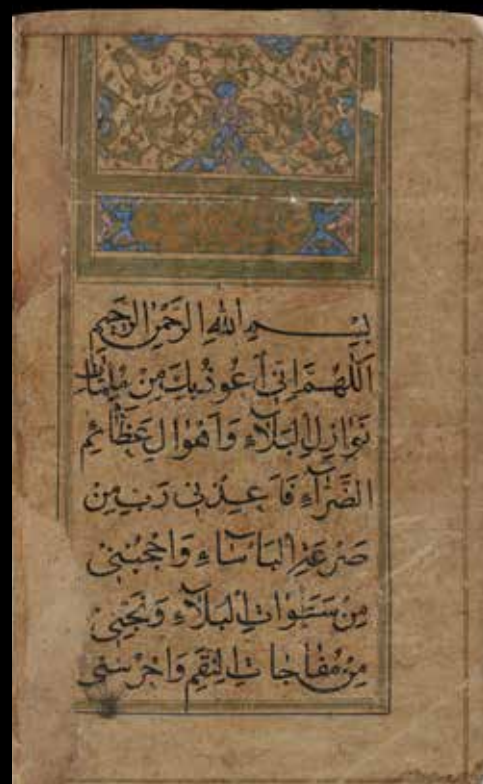 بِسْمِ اللهِ الرَّحْمٰنِ الرَّحِيْمِ
اَللّٰهُمَّ اِنّٖي اَعُوْذُ بِكَ مِنْ مُلِمَّاتِ
نَوَازِلِ الْبَلَآءِ وَاَهْوَالِ عَظَآئِمِ
الضَّرَّآءِ فَاَعِذْنِي رَبِّ مِنْ
صَرْعَةِ الْبَأْسَاءِ وَاحْجُبْنِي
مِنْ سَطَوَاتِ الْبَلَآءِ وَنَجِّنِي
مِنْ مُفَاجَاتِ النِّقَمِ وَاحْرُسْنِي